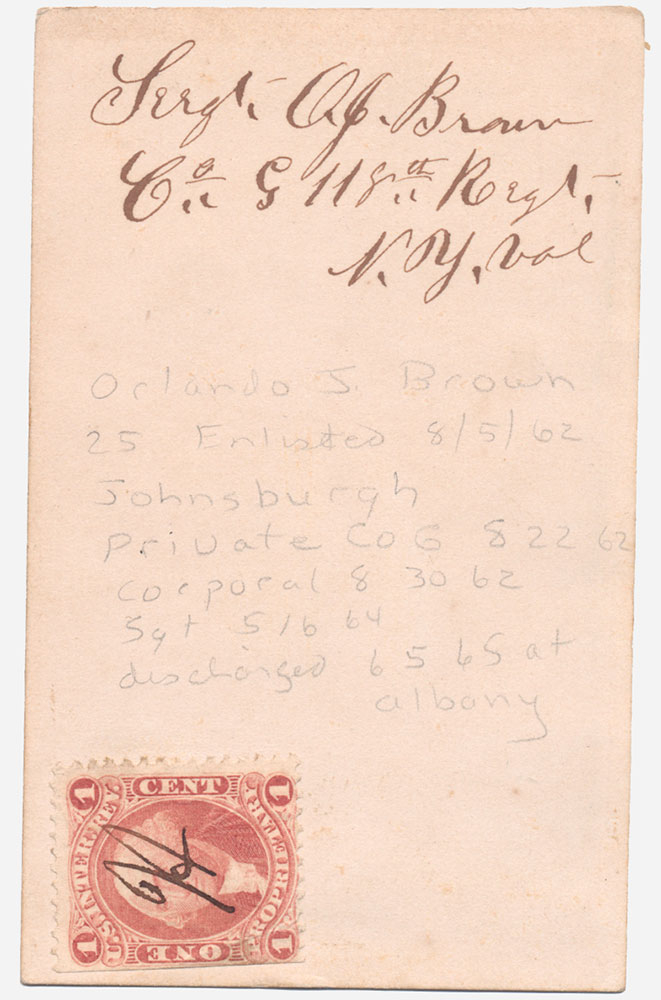 Sergt. O.J. Brown
Co. G 118th Regt.
N.Y. Vol
Orlando J. Brown
25 Enlisted 8/5/62
Johnsburgh
Private Co G 8 22 62
Corporal 8 30 62
Sgt 5 16 64
discharged 6 5 65 at
albany
1 CENT 1
U.S. INTER. REV.
PROPRIETARY
1 ONE 1